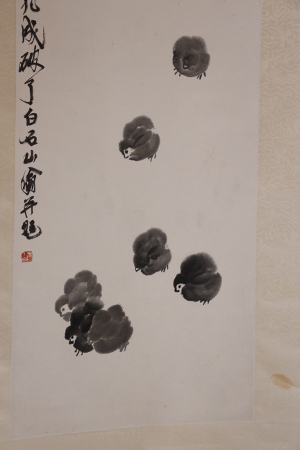 成破了白石山翁并题